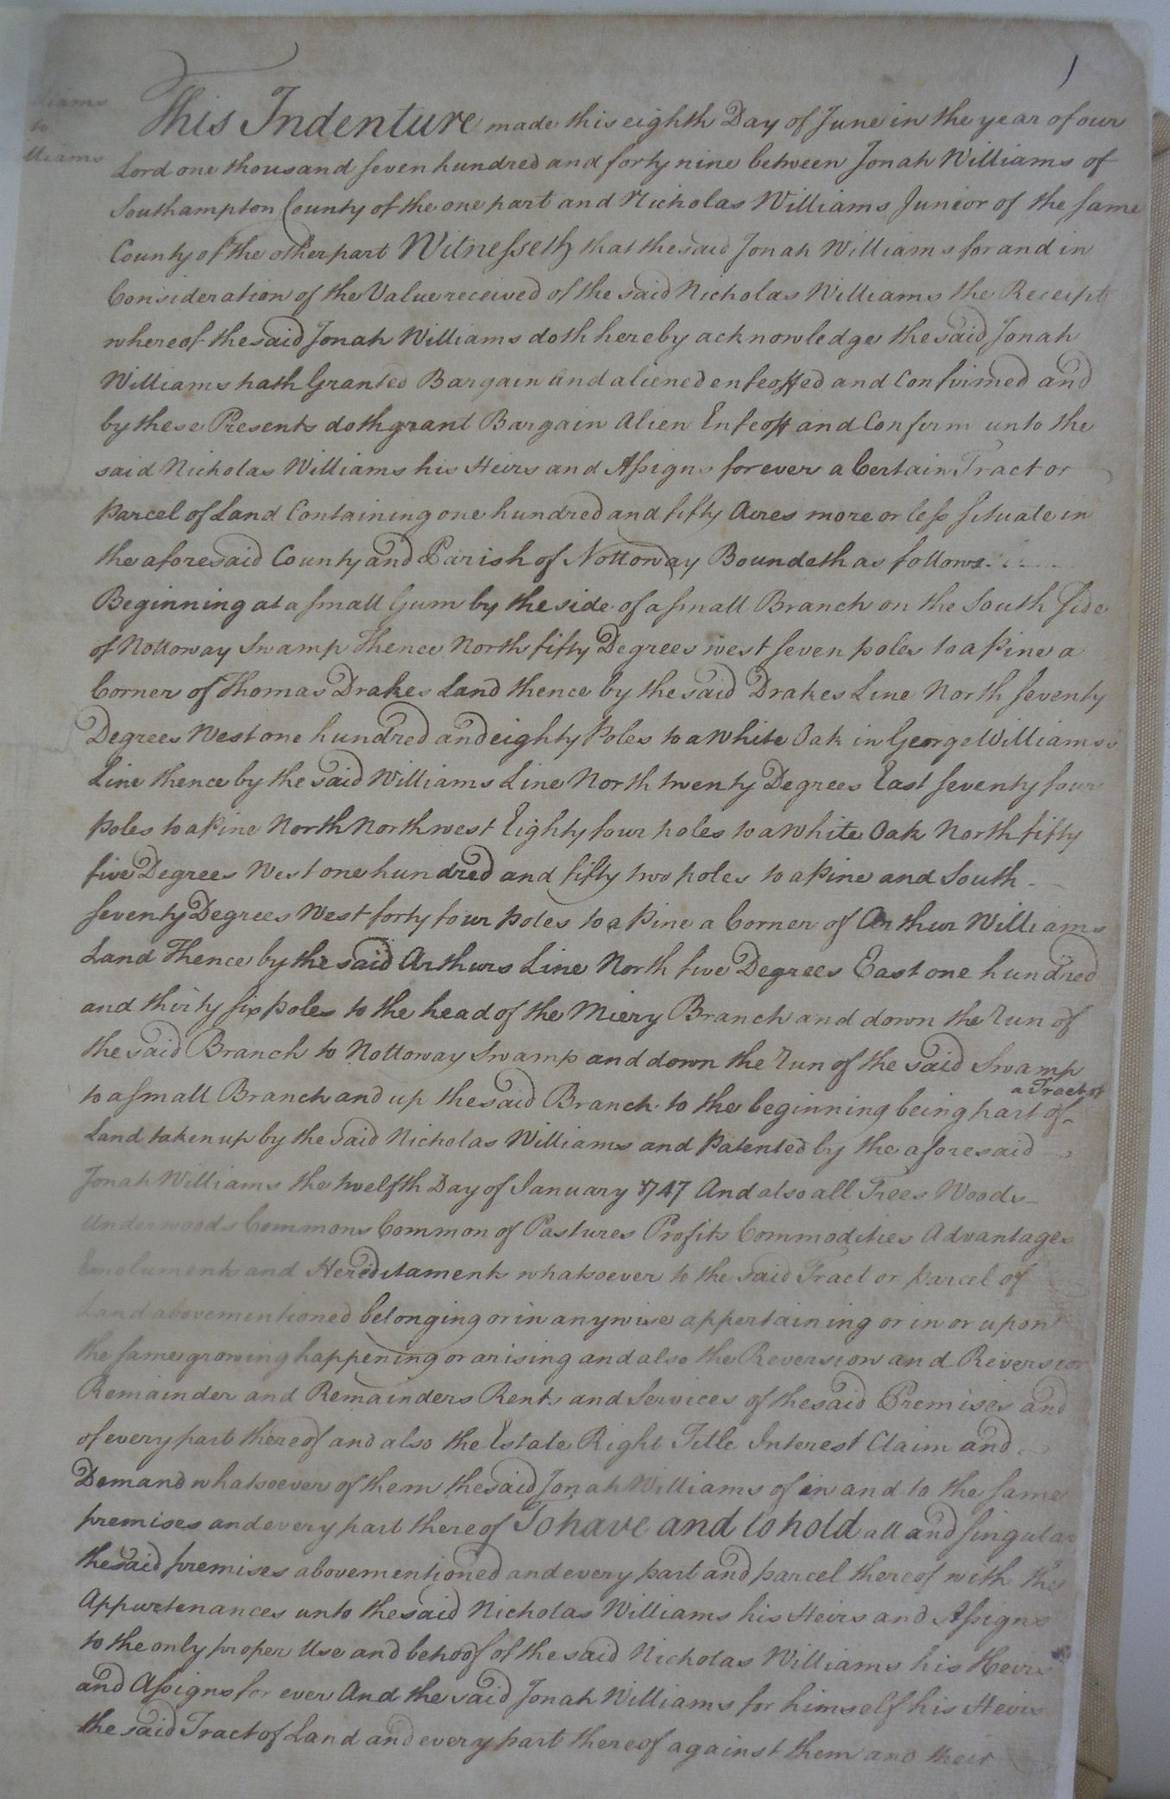 1
liams
to
lliams
This Indenture made this eighth Day of June in the year of our
Lord one thousand seven hundred and forty nine between Jonah Williams of
Southampton County of the one part and Nicholas Williams Junior of the same
County of the other part Witnesseth that the said Jonah Williams for and in
Consideration of the Value received of the said Nicholas Williams the Receipt
whereof the said Jonah Williams doth hereby acknowledge the said Jonah
Williams hath Granted Bargain and aliened enfeoffed and Confirmed and
by these Presents doth grant Bargain Alien Enfeoff and Confirm unto the
said Nicholas Williams his Heirs and Assigns for ever a Certain Tract or
Parcel of Land Containing one hundred and fifty Acres more or less situate in
the aforesaid County and Parish of Nottoway Boundeth as follows
Beginning at a small Gum by the side of a small Branch on the South side
of Nottoway Swamp Thence North fifty Degrees west seven poles to a Pine a
Corner of Thomas Drakes Land thence by the said Drakes Line North seventy
Degrees West one hundred and eighty Poles to a White Oak in George Williams's
Line thence by the said Williams Line North twenty Degrees East seventy four
Poles to a Pine North North west Eighty four poles to a White Oak North fifty
five Degrees West one hundred and fifty two poles to a Pine and South
seventy Degrees West forty four poles to a Pine a Corner of Arthur Williams
Land Thence by the said Arthurs Line North five Degrees East one hundred
and thirty six poles to the head of the Miery Branch and down the run of
the said Branch to Nottoway Swamp and down the run of the said Swamp
a Tract of
to a small Branch and up the said Branch to the beginning being part of
Land taken up by the said Nicholas Williams and Patented by the aforesaid
Jonah Williams the twelfth Day of January 1747 And also all Trees Woods
Underwoods Commons Common of Pastures Profits Commodities Advantages
Emoluments and Hereditaments whatsoever to the said Tract or parcel of
Land abovementioned belonging or in anywise appertaining or in or upon
the same growing happening or arising and also the Reversion and Reversions
Remainder and Remainders Rents and Services of the said Premises and
of every part thereof and also the Estate Right Title Interest Claim and
Demand whatsoever of them the said Jonah Williams of in and to the same
premises and every part thereof To have and to hold all and singular
the said premises abovementioned and every part and parcel thereof with the
Appurtenances unto the said Nicholas Williams his Heirs and Assigns
to the only proper Use and behoof of the said Nicholas Williams his Heirs
and Assigns for ever And the said Jonah Williams for himself his Heirs
the said Tract of Land and every part thereof against them and their